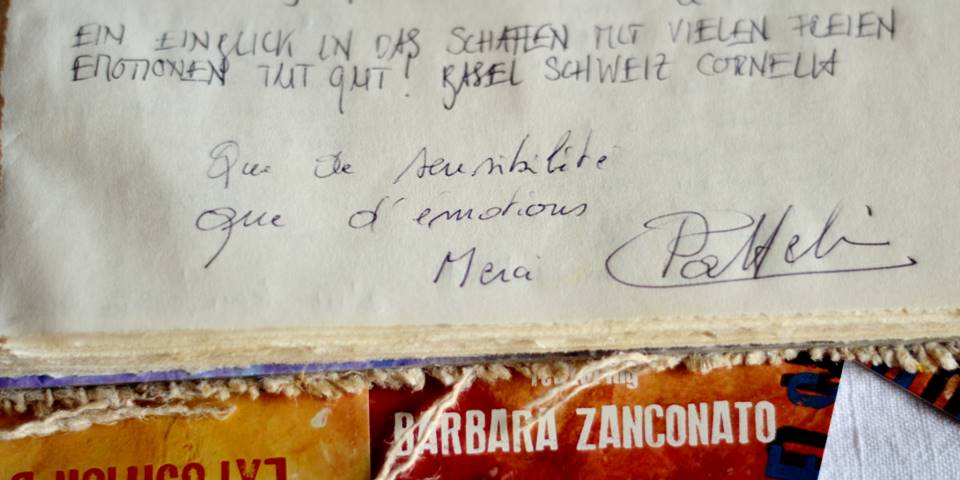 EIN EINBLICK IN DAS SCHAFFEN MIT VIELEN FREIEN
EMOTIONEN TUT GUT! BASEL SCHWEIZ CORNELIA
Que de sensibilité
que d'émotions
Merci
featuring
BARBARA ZANCONATO